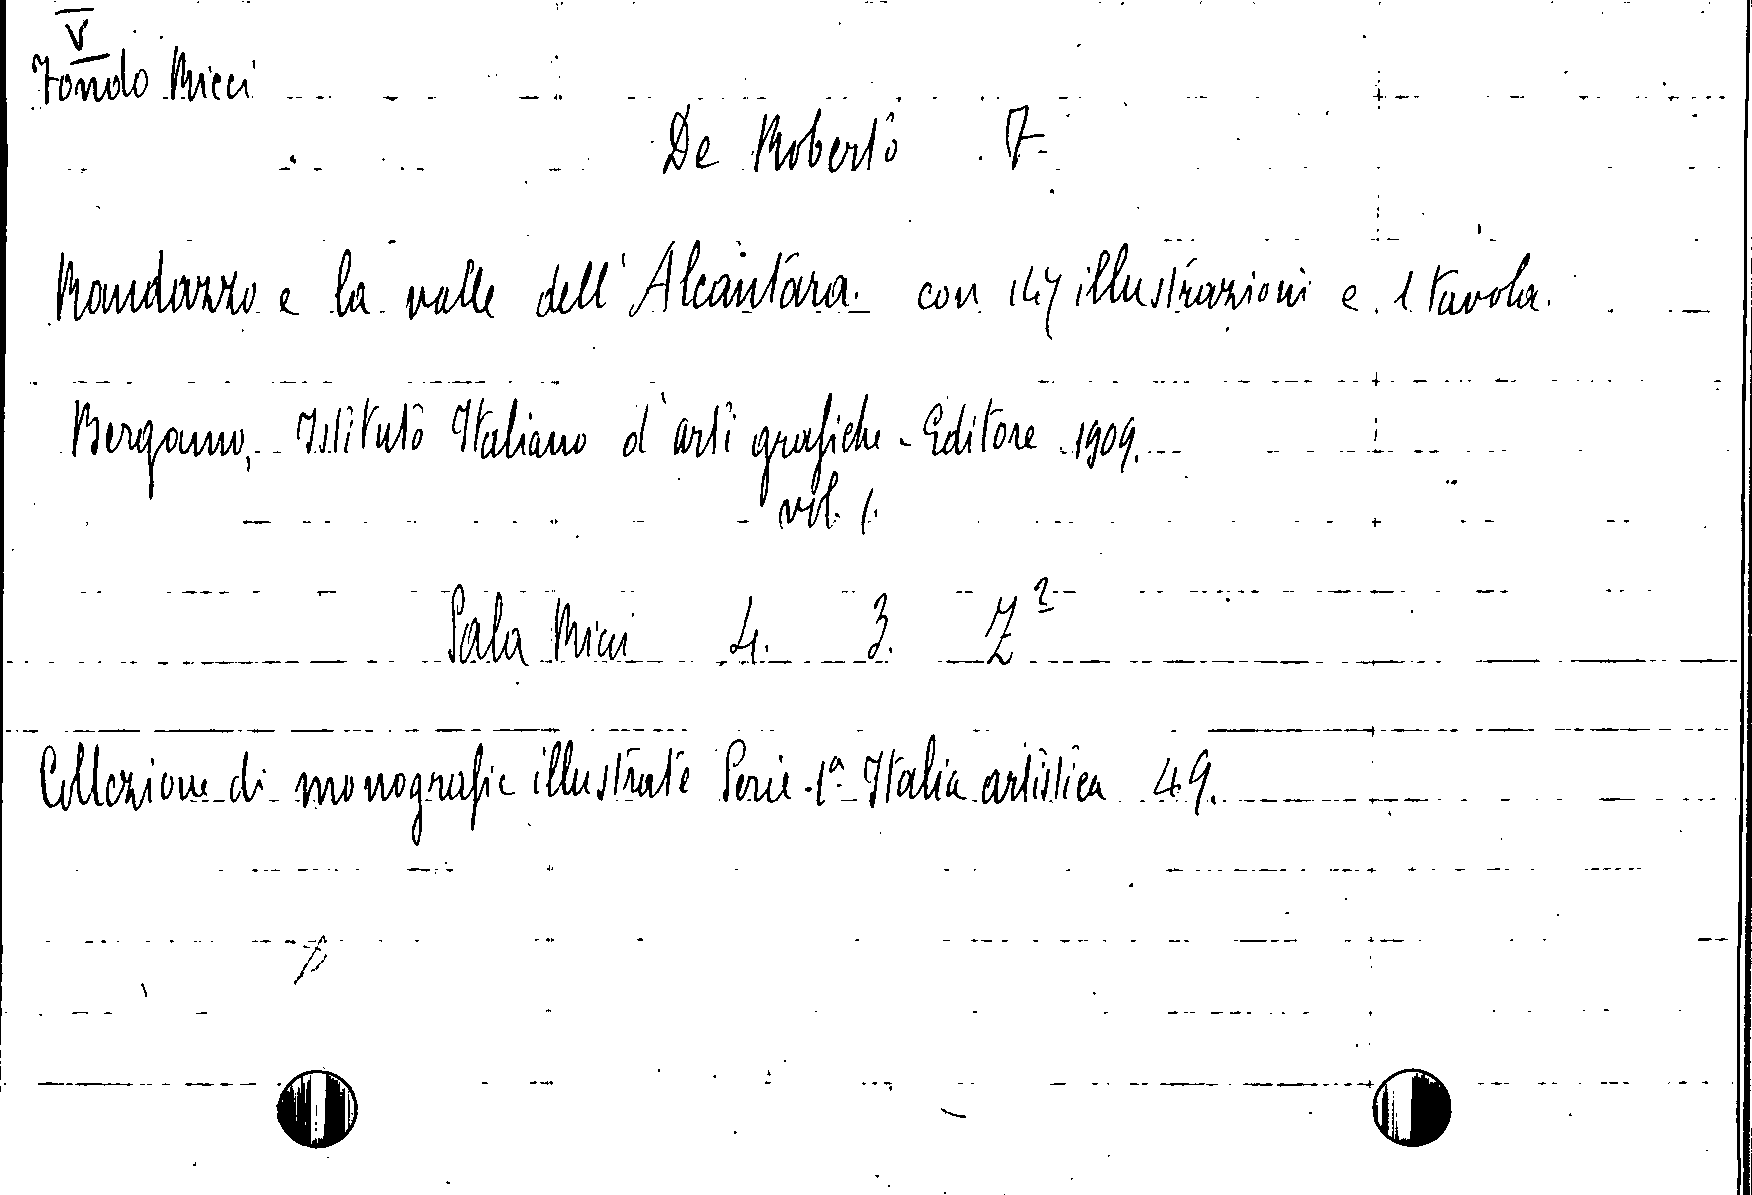 V
Fondo Ricci
De Roberto F.
Randazzo e la valle dell'Alcantara. con 147 illustrazioni e 1 tavola.
Bergamo, Istituto Italiano d'arti grafiche - Editore 1909.
vol. 1.
Sala Ricci 4. 3. Z²
Collezione di monografie illustrate Serie 1ª Italia artistica 49.